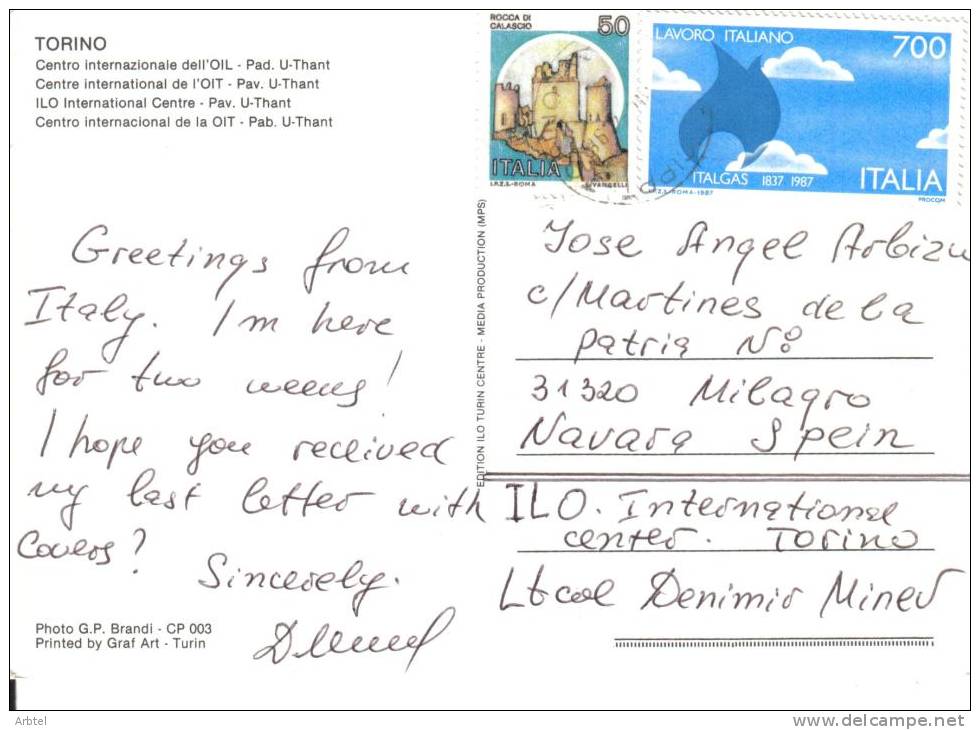 TORINO
Centro internazionale dell'OIL - Pad. U-Thant
Centre international de l'OIT - Pav. U-Thant
ILO International Centre - Pav. U-Thant
Centro internacional de la OIT - Pab. U-Thant
ROCCA DI
CALASCIO
50
ITALIA
I.P.Z.S.-ROMA
VANGELLI
LAVORO ITALIANO
700
ITALGAS 1837 1987
ITALIA
I.P.Z.S.-ROMA-1987
PROCOM
Greetings from
Italy. I'm here
for two weeks!
I hope you received
my last letter with
covers?
Sincerely.
Photo G.P. Brandi - CP 003
Printed by Graf Art - Turin
EDITION ILO TURIN CENTRE - MEDIA PRODUCTION (MPS)
Jose Angel Arbizu
c/Martines de la
patria Nº 8
31320 Milagro
Navara Spein
ILO. International
center. Torino
Ltcol Denimir Minev
Arbtel
www.delcampe.net